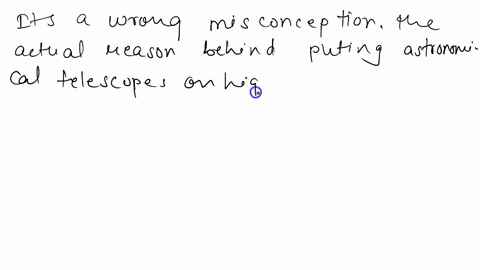 Its a wrong misconception. The
actual reason behind puting astronomi-
cal telescopes on hig